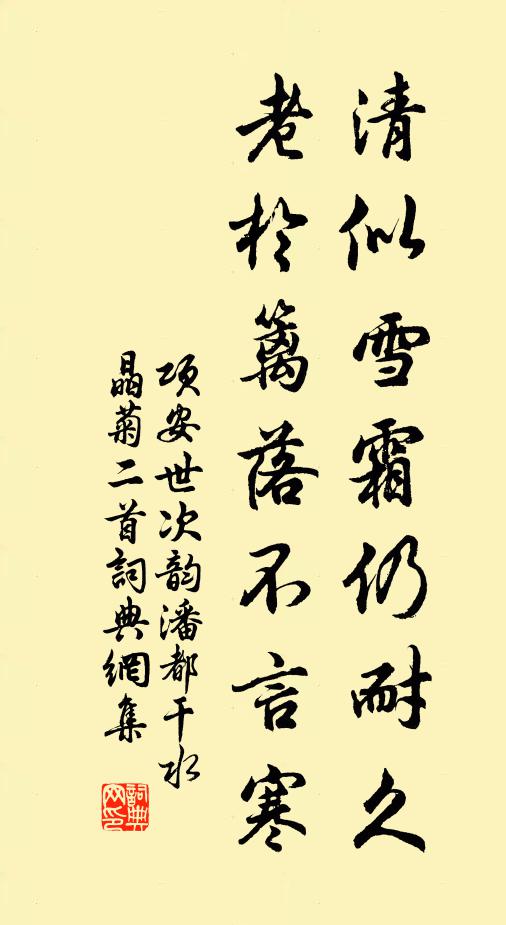 清似雪霜仍耐久
老於篱落不言寒
项安世次韵潘都干水
晶菊二首詞典網集
詞典
网印